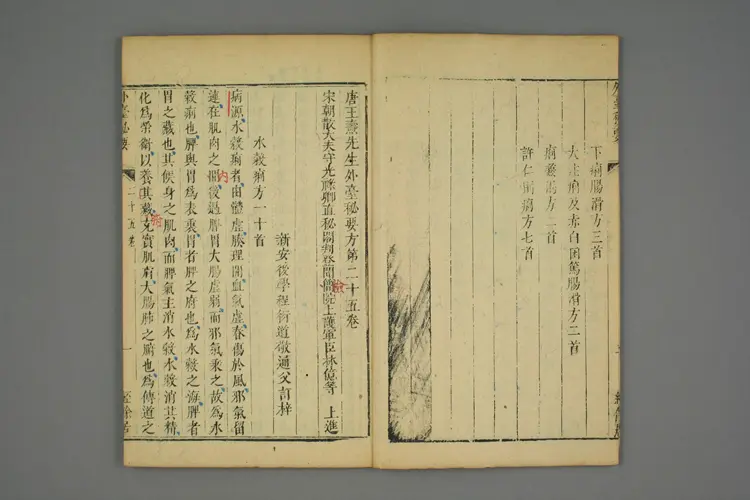 外臺秘要
下痢腸滑方三首
大注痢及赤白困篤腸滑方二首
許仁則痢方七首
唐王燾先生外臺秘要方第二十五卷
宋朝散大夫守光祿卿直秘閣判登聞檢院上護軍臣林億等 上進
新安後學程衍道敬通父訂梓
水穀痢方一十首
病源水穀痢者由體虛腠理開血氣虛春傷於風邪氣留
連在肌肉之間內後遇脾胃大腸虛弱而邪氣乘之故為水
穀痢也脾與胃為表裏胃者脾之府也為水穀之海脾者
胃之藏也其候身之肌肉而脾氣主消水穀水穀消其精
化為榮衛以養其藏充實肌膚大腸肺之腑也為傳道之
外臺秘要
二十五卷
一
經餘居